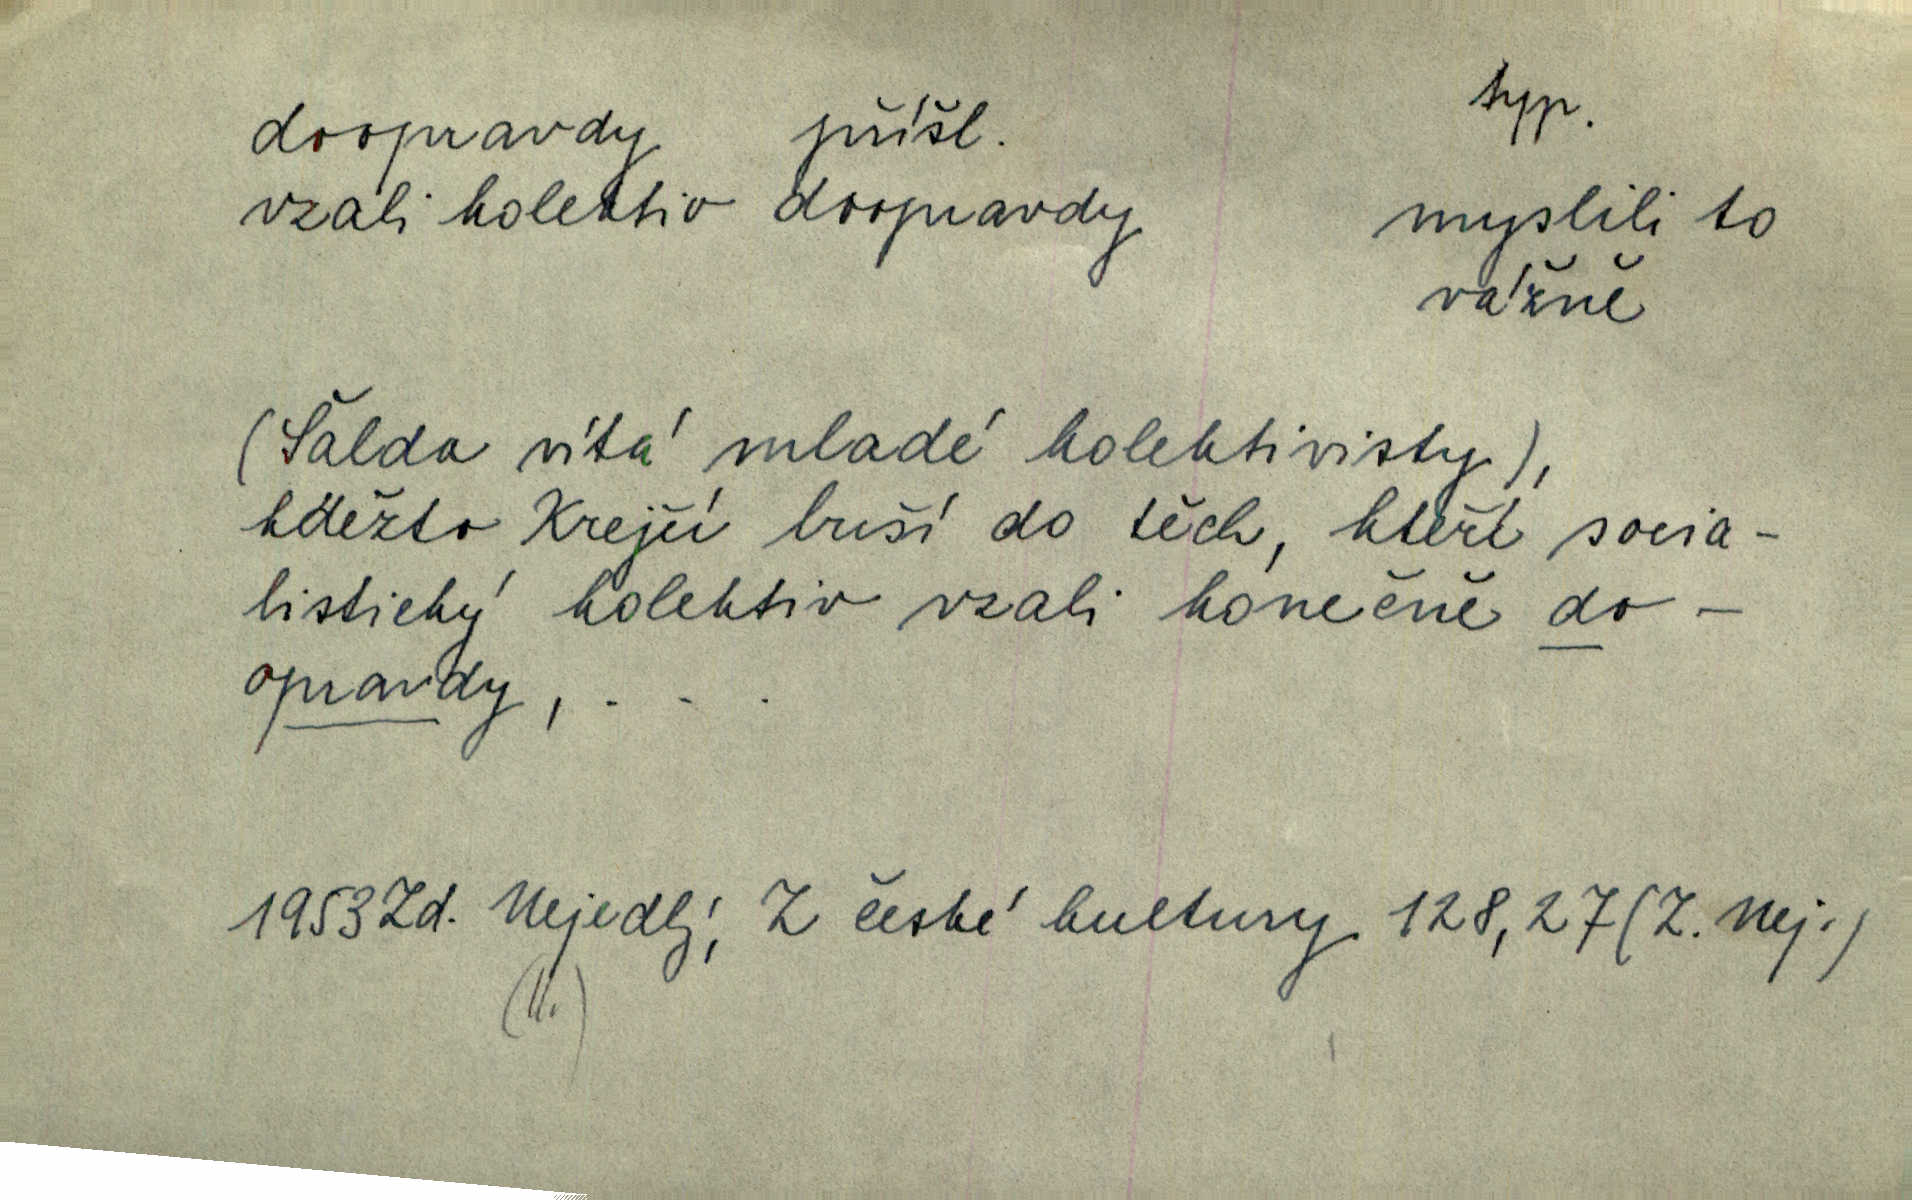 typ.
doopravdy přísl.
vzali kolektiv doopravdy myslili to
vážně
(Šalda vítá mladé kolektivisty),
kdežto Krejčí buší do těch, kteří socia-
listický kolektiv vzali konečně do-
opravdy, . . .
1953 Zd. Nejedlý, Z české kultury 128,27 (Z. Nej.)